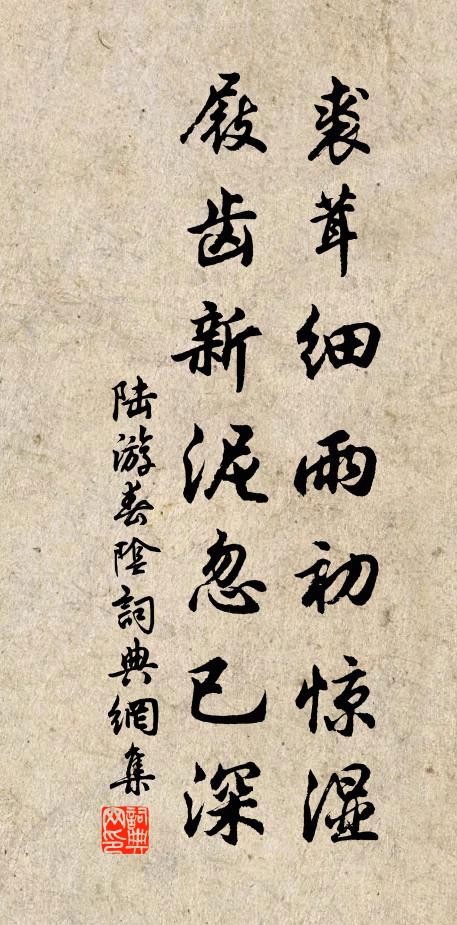 裘茸细雨初惊湿
屐齿新泥忽已深
陆游春陰詞典網集
詞典网印